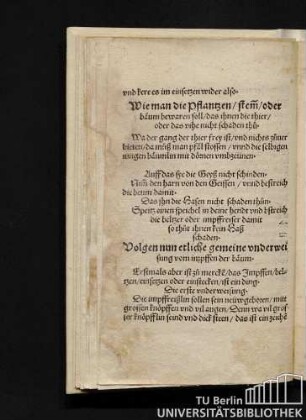 vnd kere es im einsetzen wider also.
Wie man die Pflantzen/ stem̃/oder
bäum bewaren soll/das ihnen die thier/
oder das vihe nicht schaden thů.
Wa der gang der thier frey ist/vnd nichts zůuer
bieten/da můß man pfäl stossen/ vnnd die selbigen
iungen bäumlin mit dörnen vmbzeünen.
Auff das sye die Geyß nicht schinden.
Nim den harn von den Geissen/ vnnd bestreich
die beum damit.
Das jhn die Hasen nicht schaden thůn.
Speitz einen speichel in deine hendt vnd bstreich
die beltzer oder impffreiser damit
so thůt ihnen kein Haß
schaden.
Volgen nun etliche gemeine vnderwei
sung vom impffen der bäum.
Erstmals aber ist zů mercke/das Impffen/bel-
tzen/versetzen oder einstecken/ist ein ding.
Die erste vnderweisung.
Die impffreißlin sollen sein neüwgeboren/ mitt
grossen knöpffen vnd vil augen. Denn wa vil gros
ser knöpfflin seind vnd dick steen/ das ist ein zeiche
TU Berlin
UNIVERSITÄTSBIBLIOTHEK